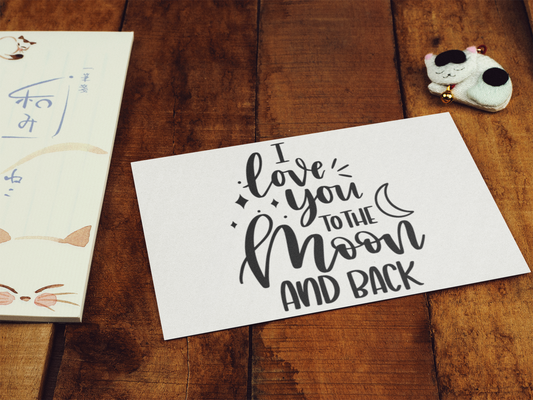 一筆箋
和み
ねこ
I
love
you
TO THE
Moon
AND BACK